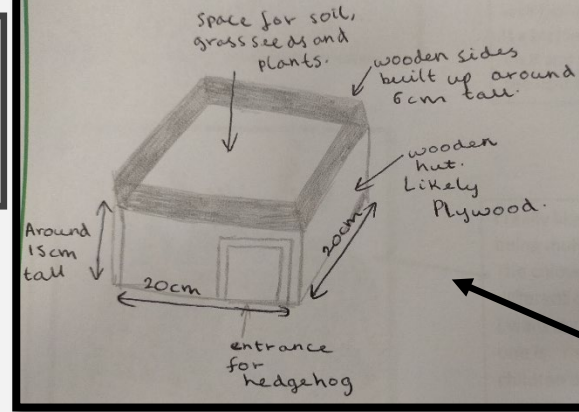 Space for soil,
grass seeds and
plants.
wooden sides
built up around
6cm tall.
wooden
hut.
Likely
Plywood.
Around
15cm
tall
20cm
20cm
entrance
for
hedgehog